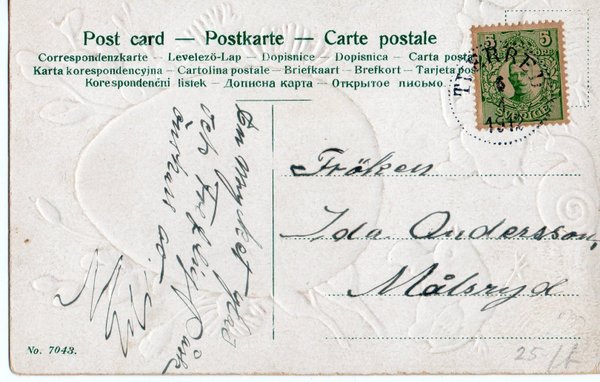 Post card — Postkarte — Carte postale
Correspondenzkarte – Levelező-Lap – Dopisnice – Dopisnica – Carta posta
Karta korespondencyjna – Cartolina postale – Briefkaart – Brefkort – Tarjeta pos
Korespondenční lístek – Дописна карта – Открытое письмо.
5 5
ÖRE
1912
En mycket glad
och Fröjlig Påsk
önskas av
Fröken
Ida Andersson,
Målsryd
No. 7043.
25/-